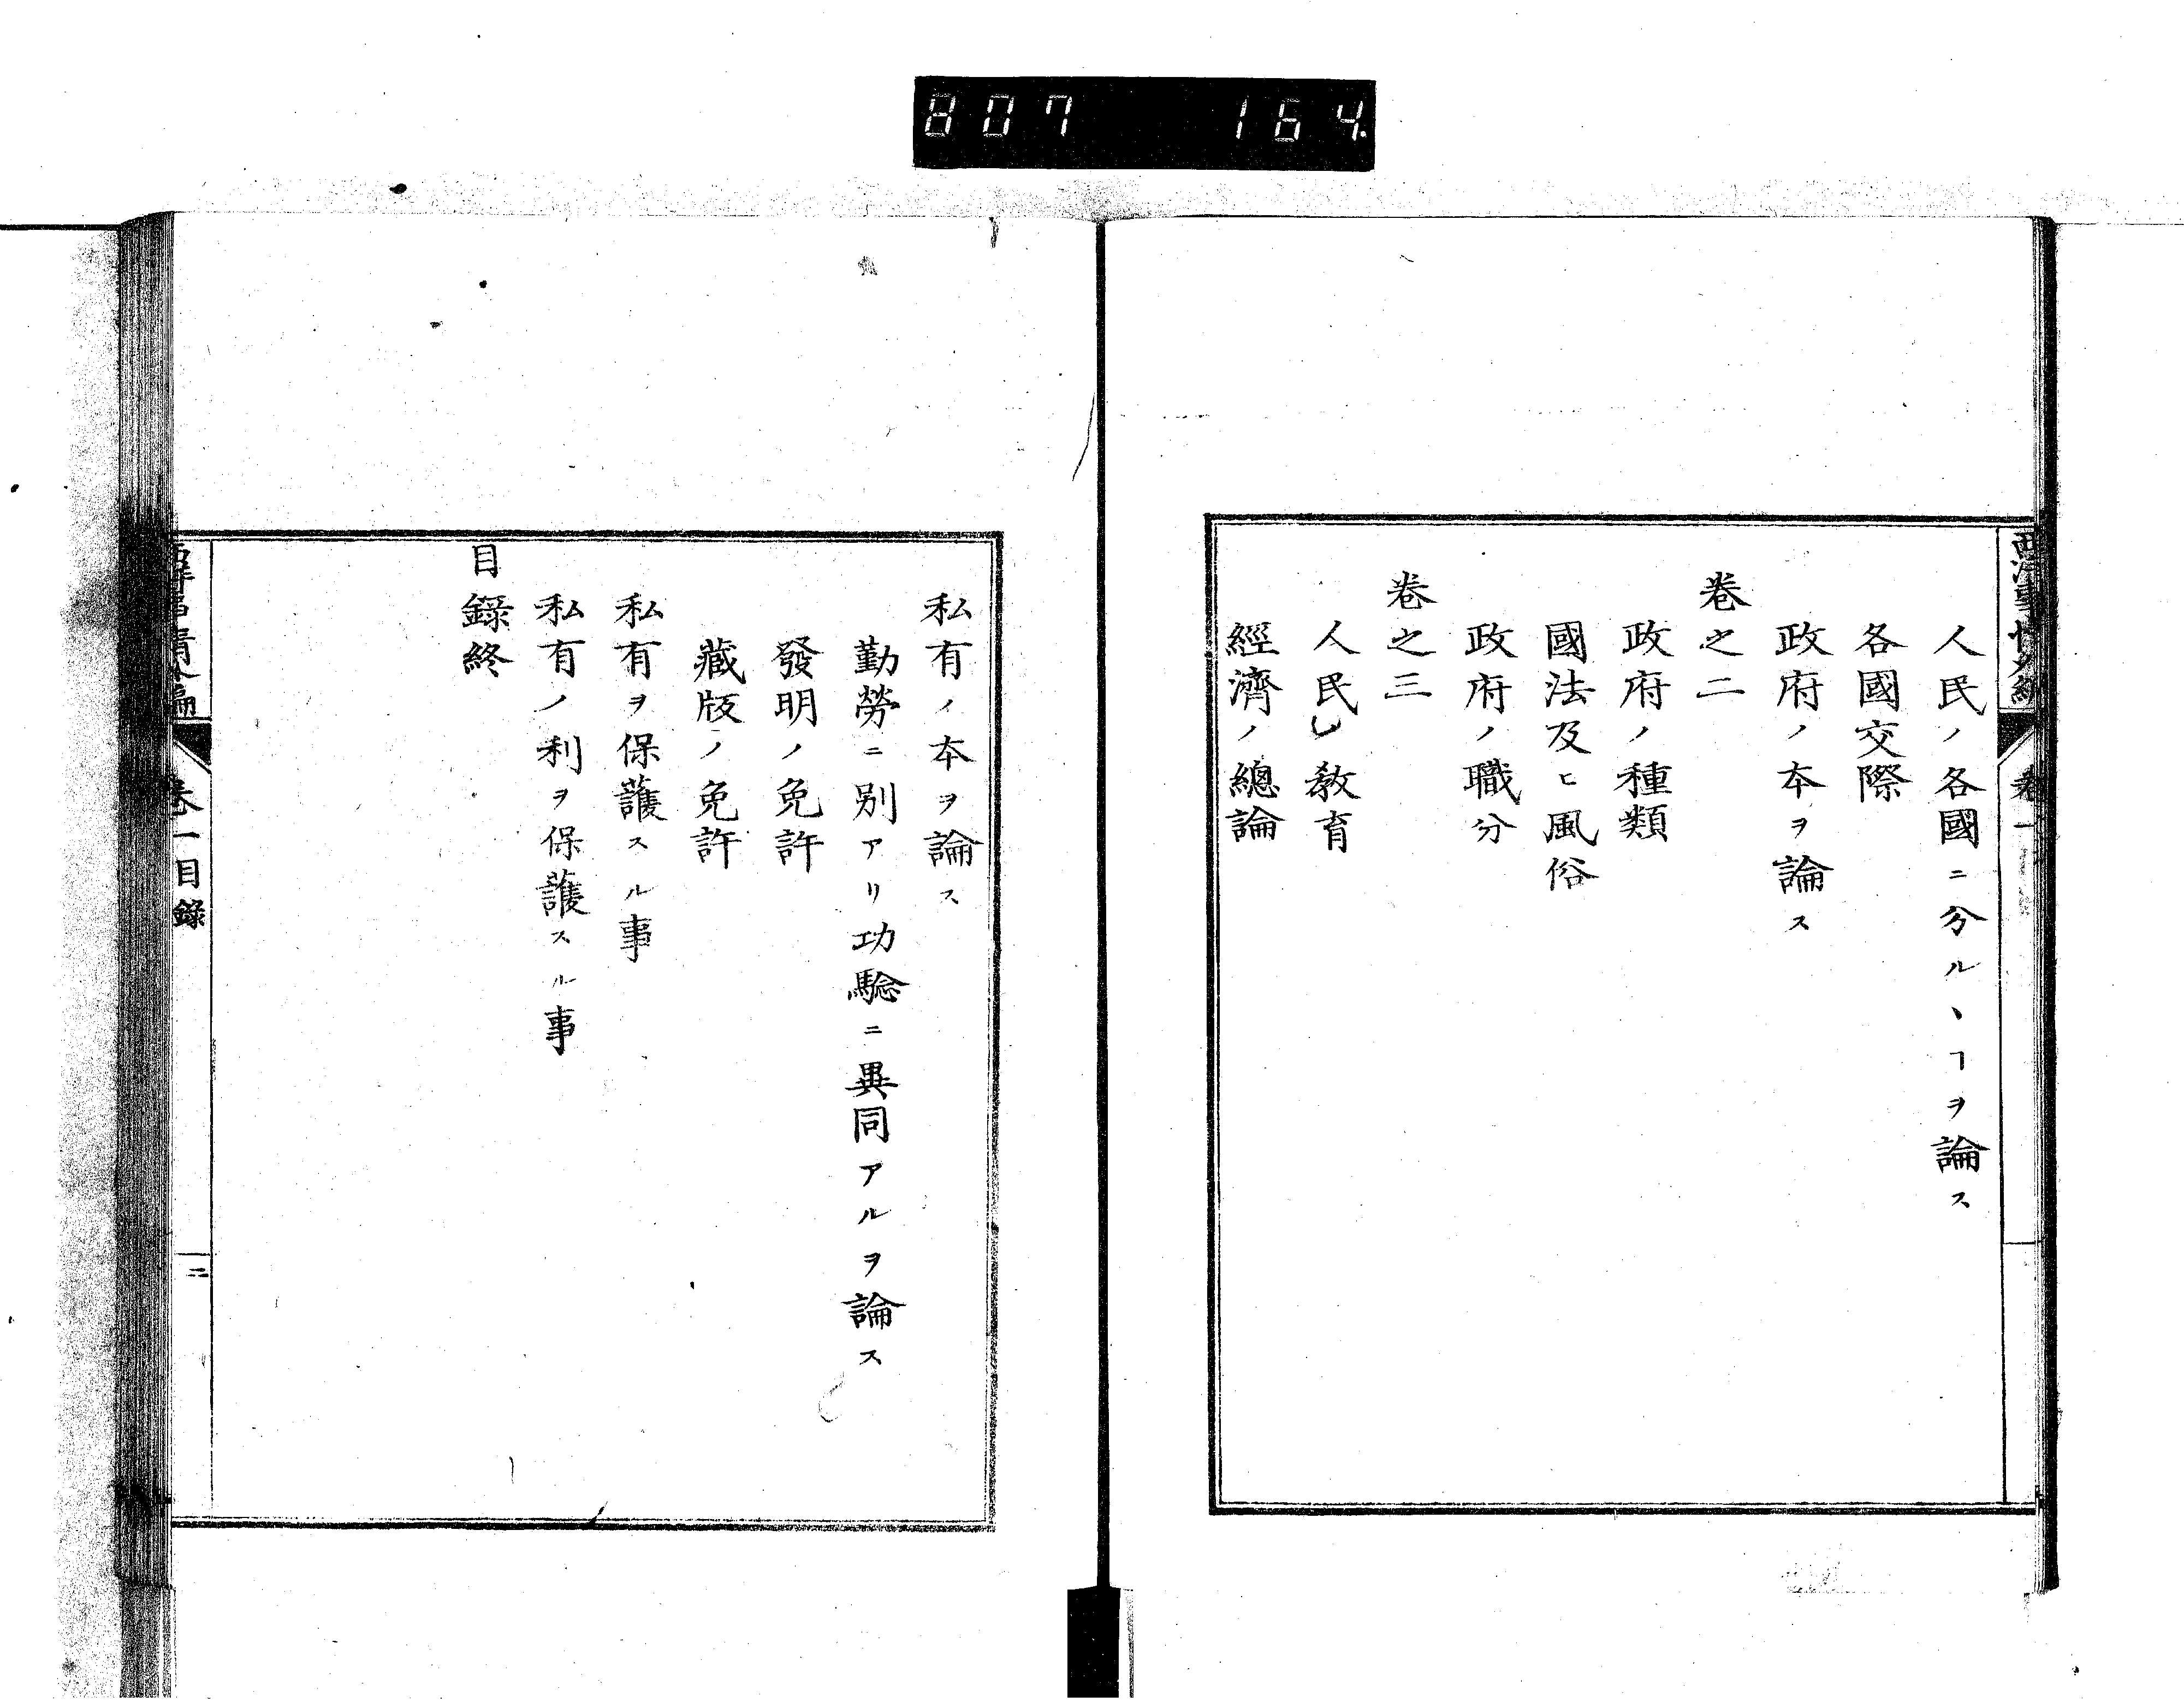 807 164
西洋事情外編 卷一
人民ノ各國ニ分ルヽヿヲ論ス
各國交際
政府ノ本ヲ論ス
卷之二
政府ノ種類
國法及ヒ風俗
政府ノ職分
卷之三
人民ノ教育
經濟ノ總論
私有ノ本ヲ論ス
勤勞ニ別アリ功驗ニ異同アルヲ論ス
發明ノ免許
藏版ノ免許
私有ヲ保護スル事
私有ノ利ヲ保護スル事
目錄終
西洋事情外編 卷一目錄 二